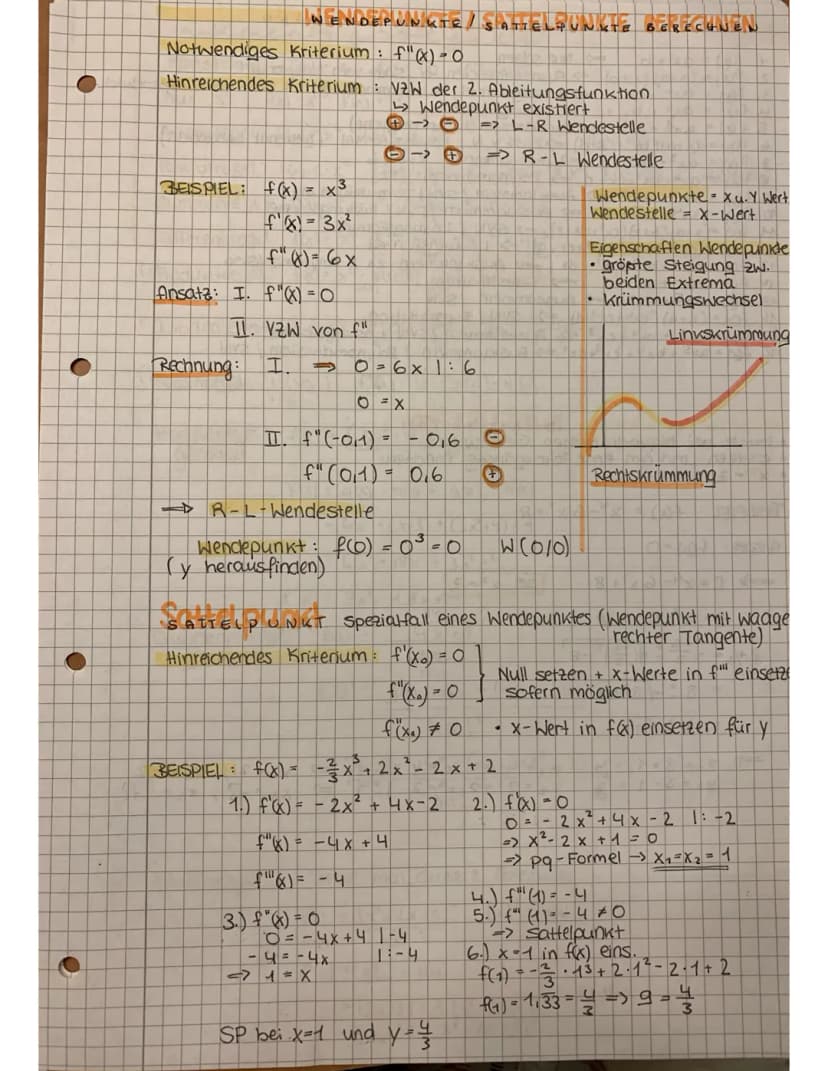 WENDEPUNKTE / SATTELPUNKTE BERECHNEN
Notwendiges Kriterium : f"(x) = 0
Hinreichendes Kriterium : VZW der 2. Ableitungsfunktion
↳ Wendepunkt existiert
⊕ → ⊖ => L-R Wendestelle
⊖ → ⊕ => R-L Wendestelle
BEISPIEL: f(x) = x³
f'(x) = 3x²
f"(x) = 6x
Ansatz: I. f"(x) = 0
II. VZW von f"
Rechnung: I. ⇒ 0 = 6x |: 6
0 = x
II. f"(-0,1) = -0,6 ⊖
f"(0,1) = 0,6 ⊕
⇒ R-L-Wendestelle
Wendepunkt : f(0) = 0³ = 0 W(0/0)
(y herausfinden)
Wendepunkte = x u. Y Wert
Wendestelle = X-Wert
Eigenschaften Wendepunkte
• größte Steigung zw.
beiden Extrema
• Krümmungswechsel
Linkskrümmung
Rechtskrümmung
Sattelpunkt
SATTELPUNKT Spezialfall eines Wendepunktes (Wendepunkt mit waage
rechter Tangente)
Hinreichendes Kriterium : f'(x₀) = 0
f"(x₀) = 0
Null setzen + x-Werte in f"' einsetz
sofern möglich
f"'(x₀) ≠ 0 • x-Wert in f(x) einsetzen für y
BEISPIEL : f(x) = -⅔x³ + 2x² - 2x + 2
1.) f'(x) = -2x² + 4x - 2
f"(x) = -4x + 4
f"'(x) = -4
2.) f'(x) = 0
0 = -2x² + 4x - 2 |: -2
=> x² - 2x + 1 = 0
=> pq-Formel → x₁=x₂ = 1
3.) f"(x) = 0
0 = -4x + 4 |-4
-4 = -4x |:-4
=> 1 = x
4.) f"'(1) = -4
5.) f"'(1) = -4 ≠ 0
=> Sattelpunkt
6.) x=1 in f(x) eins.
f(1) = -⅔ · 1³ + 2·1² - 2·1 + 2
f(1) = 1,33 = 4/3 => y = 4/3
SP bei x=1 und y = 4/3